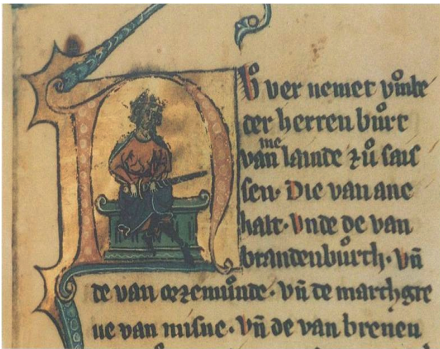 Nv ver nemet vmbe
der herren burt
van me lande zů sas
sen· Die van ane
halt· Vnde de van
brandenburch· vñ
de van orzemůnde· vñ de marchgre
ue van misne· vñ de van brenen